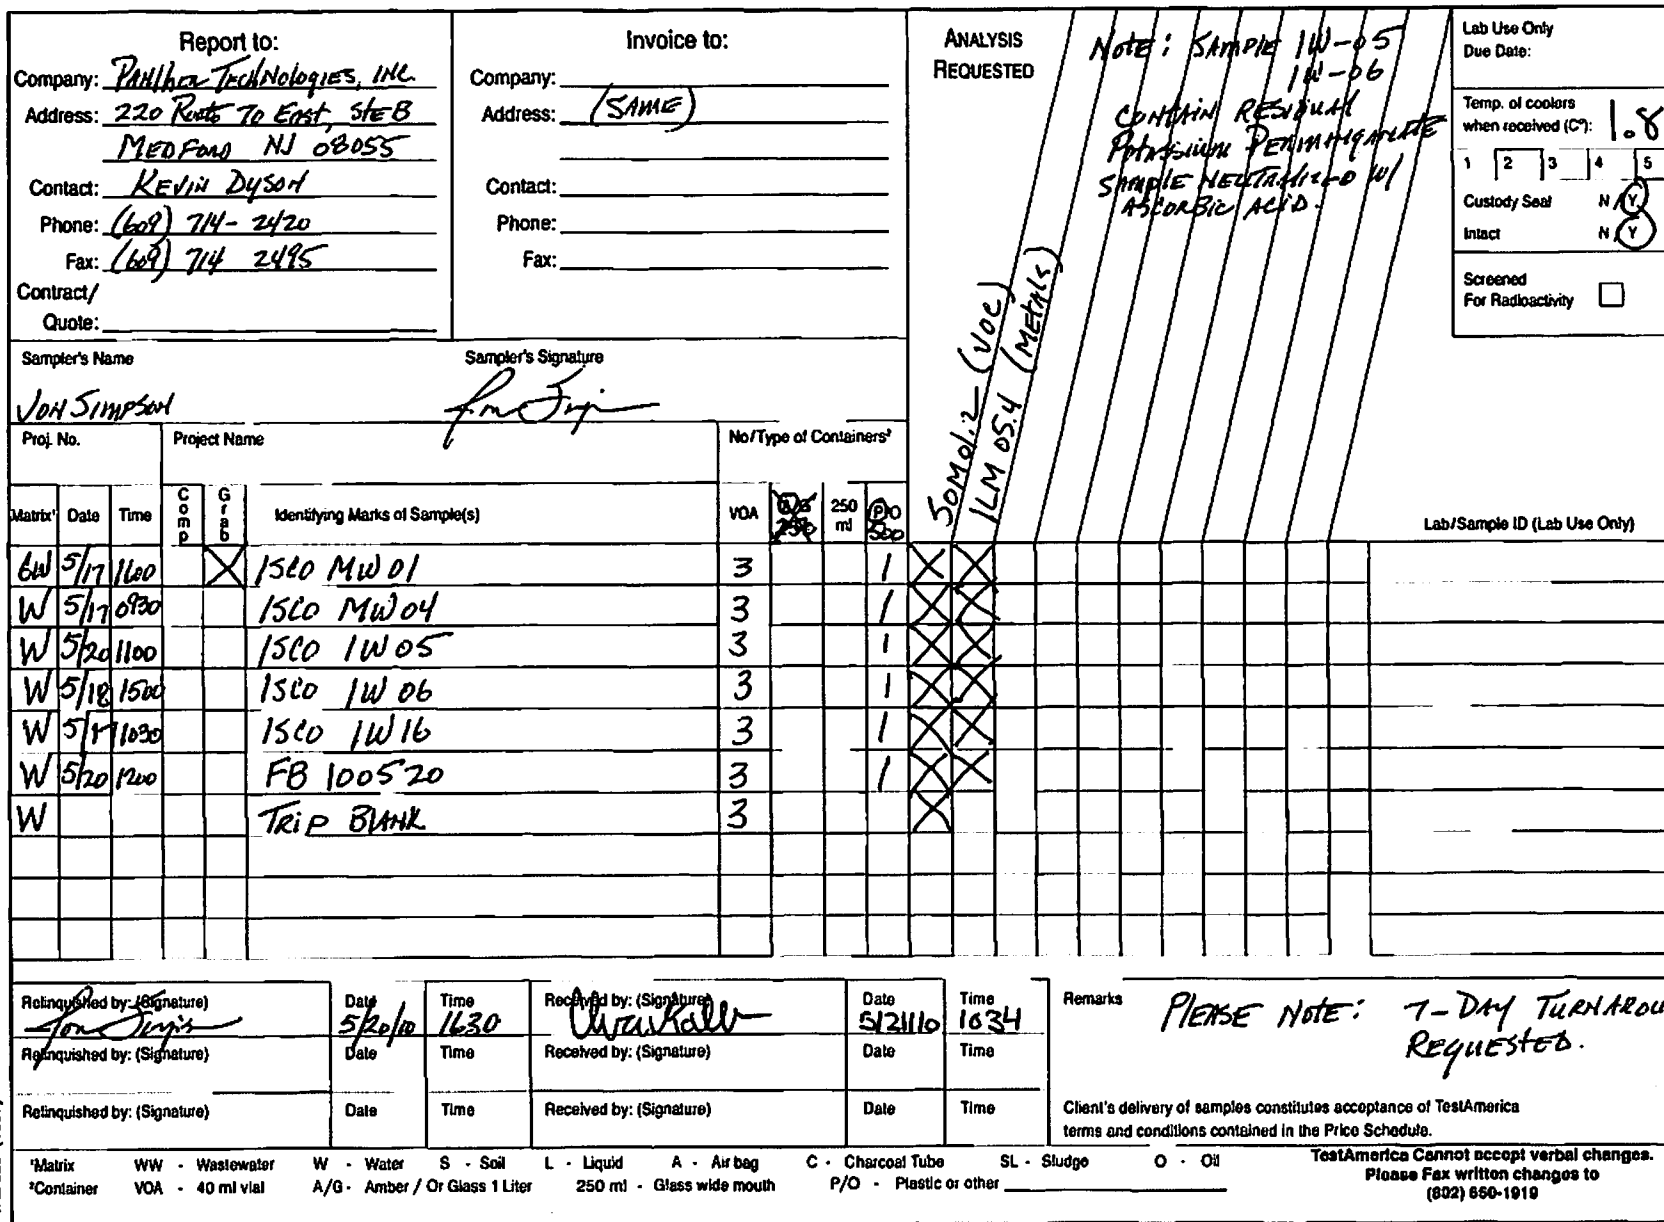 Report to:
Company: Panther Technologies, Inc.
Address: 220 Route 70 East, Ste B
Medford NJ 08055
Contact: Kevin Dyson
Phone: (609) 714-2420
Fax: (609) 714 2495
Contract/
Quote:
Invoice to:
Company:
Address: (SAME)
Contact:
Phone:
Fax:
ANALYSIS
REQUESTED
Note: Sample IW-05
IW-06
CONTAIN RESIDUAL
Potassium Permanganate
SAMPLE NEUTRALIZED W/
ASCORBIC ACID.
SOM01.2 (VOC)
ILM 05.4 (Metals)
Lab Use Only
Due Date:
Temp. of coolers
when received (C°): 1.8
1 2 3 4 5
Custody Seal N / Y
Intact N / Y
Screened
For Radioactivity
Sampler's Name
Sampler's Signature
Jon Simpson
Proj. No. Project Name No/Type of Containers²
Matrix¹ Date Time Comp Grab Identifying Marks of Sample(s) VOA 250 ml P/O 500 Lab/Sample ID (Lab Use Only)
GW 5/17 1600 X ISCO MW01 3 1 X X
W 5/17 0930 ISCO MW04 3 1 X X
W 5/20 1100 ISCO IW05 3 1 X X
W 5/18 1500 ISCO IW06 3 1 X X
W 1030 ISCO IW16 3 1 X X
W 5/20 1200 FB 100520 3 1 X X
W TRIP BLANK 3 X
Relinquished by: (Signature) Date 5/20/10 Time 1630 Received by: (Signature) Date 5/21/10 Time 1034
Relinquished by: (Signature) Date Time Received by: (Signature) Date Time
Relinquished by: (Signature) Date Time Received by: (Signature) Date Time
Remarks
PLEASE NOTE: 7-DAY TURNAROU
REQUESTED.
Client's delivery of samples constitutes acceptance of TestAmerica
terms and conditions contained in the Price Schedule.
¹Matrix WW - Wastewater W - Water S - Soil L - Liquid A - Air bag C - Charcoal Tube SL - Sludge O - Oil
²Container VOA - 40 ml vial A/G - Amber / Or Glass 1 Liter 250 ml - Glass wide mouth P/O - Plastic or other
TestAmerica Cannot accept verbal changes.
Please Fax written changes to
(802) 660-1919